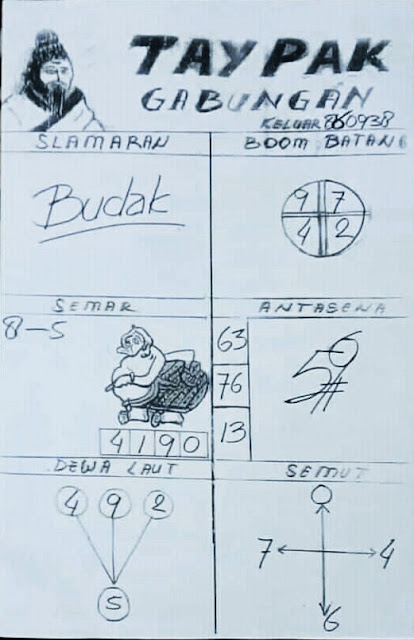 TAYPAK
GABUNGAN
KELUAR 860938
SLAMARAN
BOOM BATANG
Budak
9 7
4 2
SEMAR
8-5
4190
63
76
13
ANTASENA
DEWA LAUT
4 9 2
5
SEMUT
7 4
6